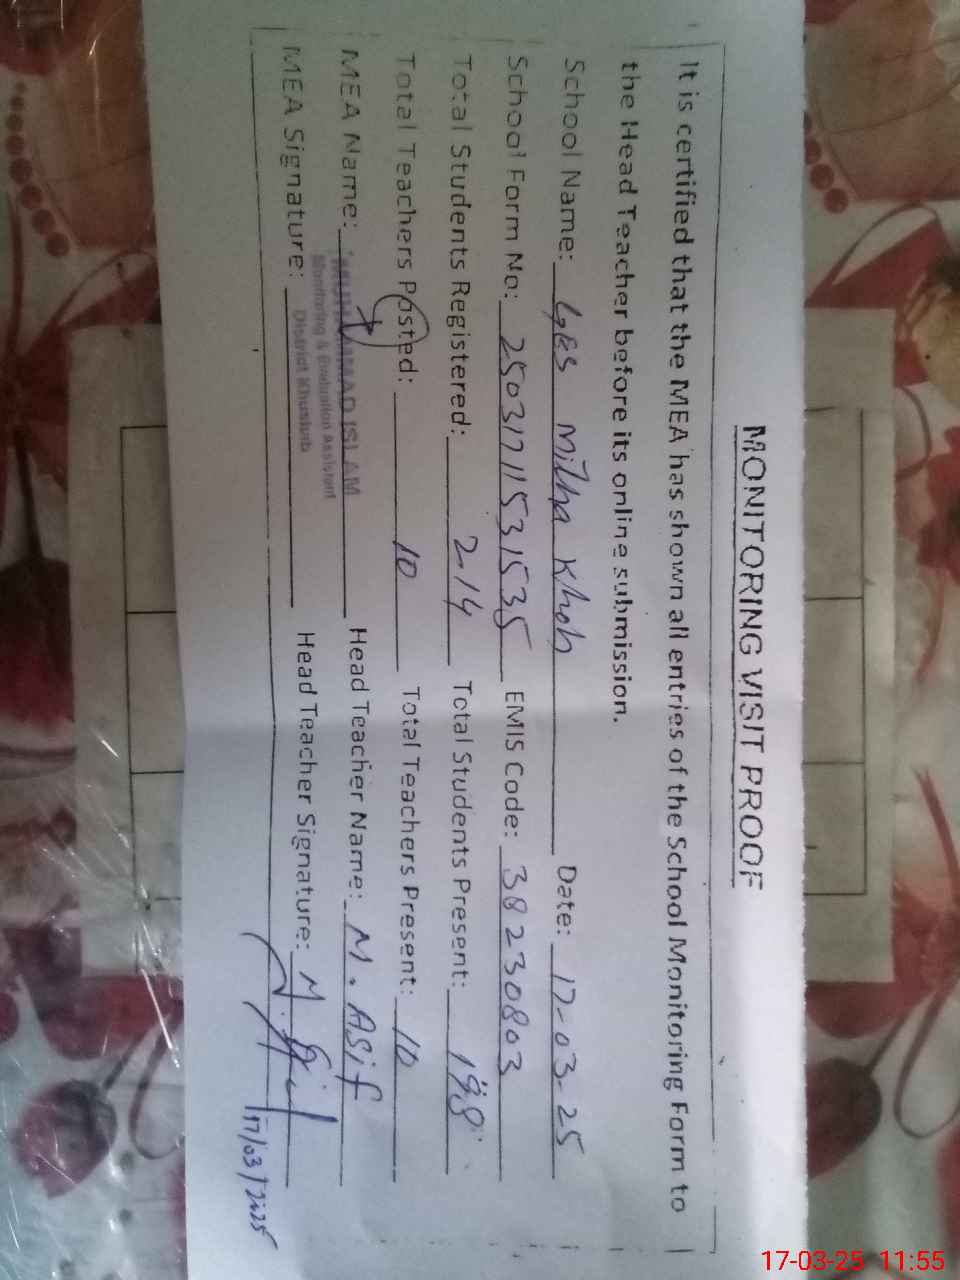 MONITORING VISIT PROOF
It is certified that the MEA has shown all entries of the School Monitoring Form to
the Head Teacher before its online submission.
School Name: GES Mitha Khoh Date: 17-03-25
School Form No: 25031711531535 EMIS Code: 38230803
Total Students Registered: 214 Total Students Present: 198
Total Teachers Posted: 10 Total Teachers Present: 10
MEA Name: MUHAMMAD ISLAM Head Teacher Name: M. Asif
Monitoring & Evaluation Assistant
District Khushab
MEA Signature: Head Teacher Signature: M. Asif
17/03/2025
17-03-25 11:55